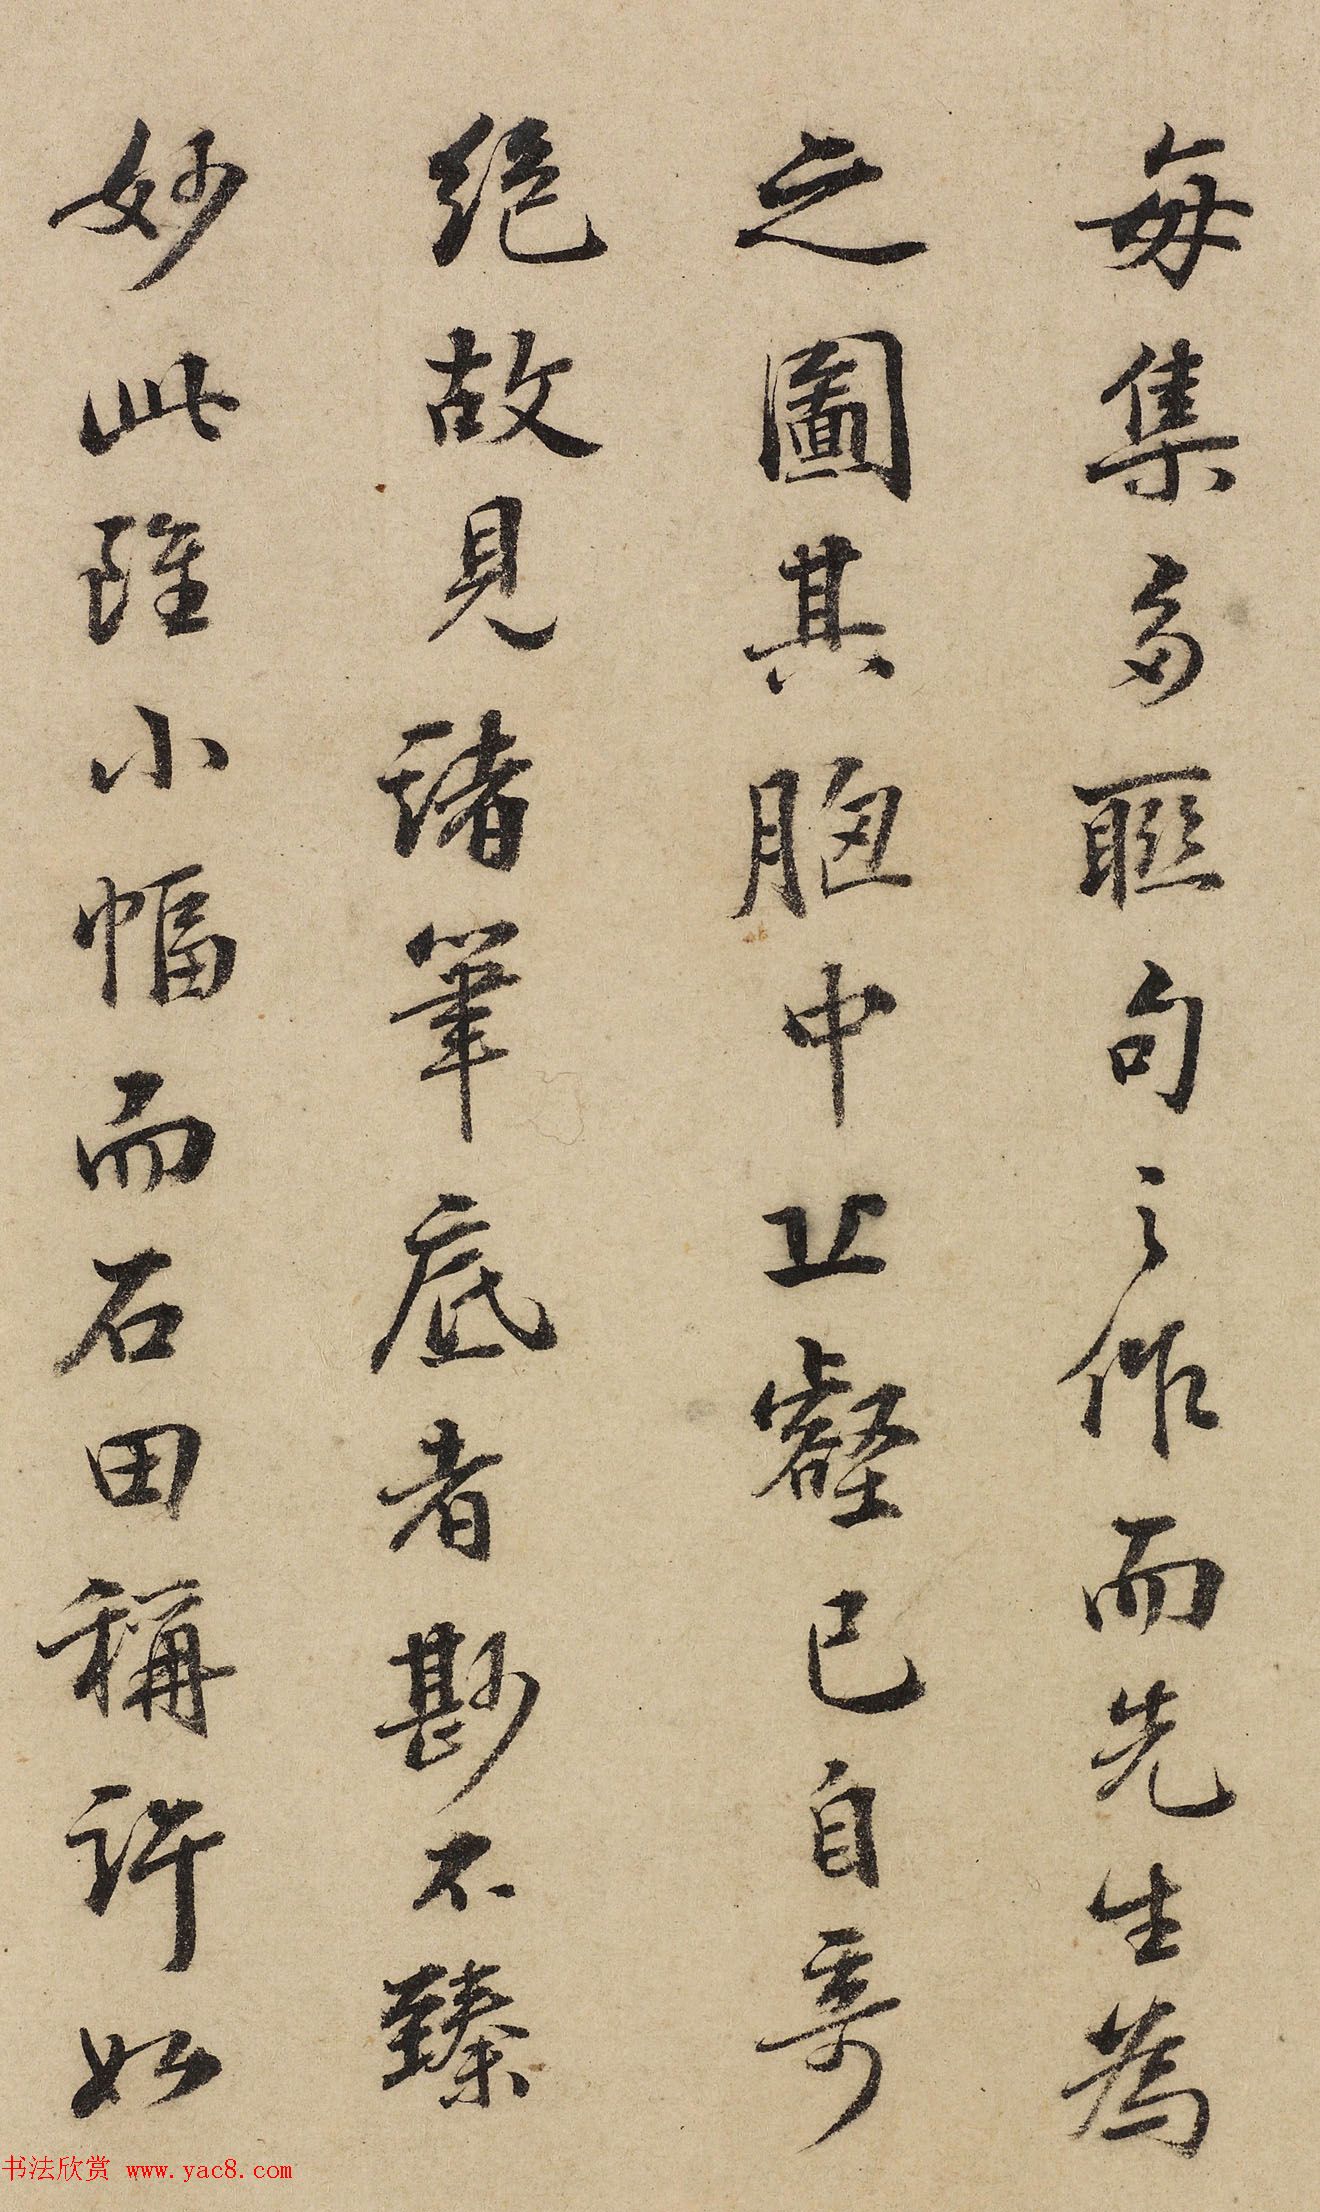 每集多聯句之作而先生為
之圖其胸中丘壑已自奇
絕故見諸筆底者尠不臻
妙此雖小幅而石田稱許如
书法欣赏 www.yac8.com